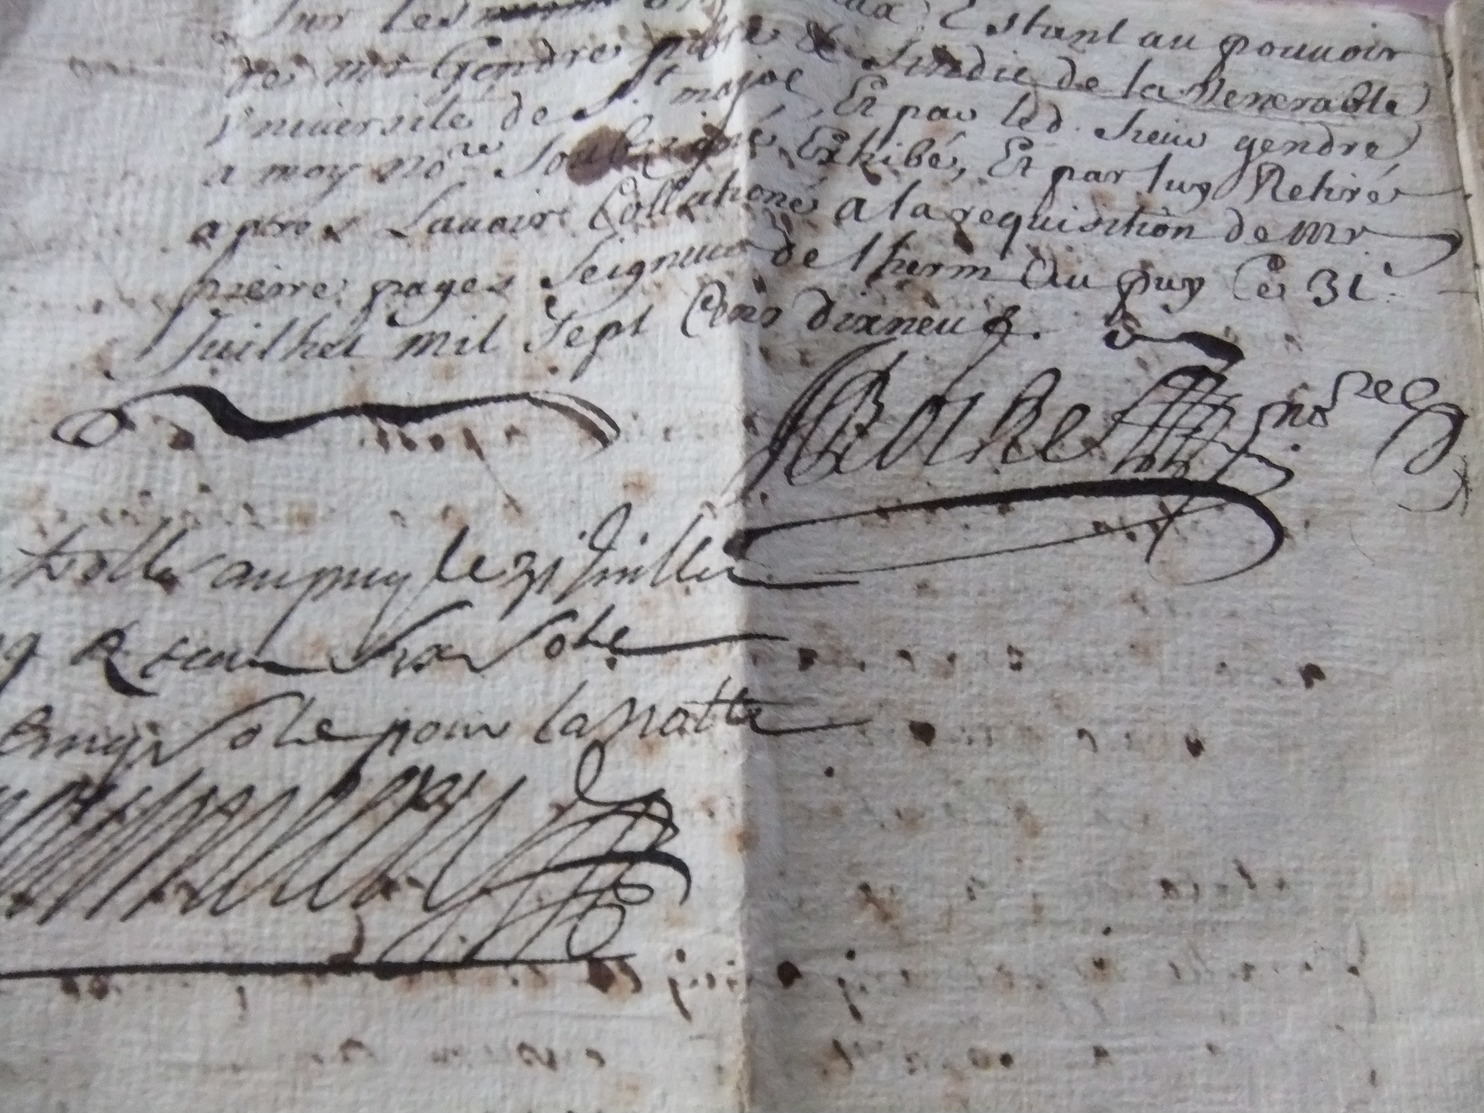 Sur les Estant au pouvoir
de mr Gendre pbre & Sindic de la Venerable
Vniversité de St majol, Et par led. sieur gendre
a moy nore Soubsigné Exhibé, Et par luy Retiré
apres Lauoir Collationé a la requisition de Mr
pierre pages Seigneur de lherm Au puy Ce 31e
Juilhet mil Sept Cens dixneuf.
nore
au puy le 31 Juillet
Receu six sols
sols pour la Natte